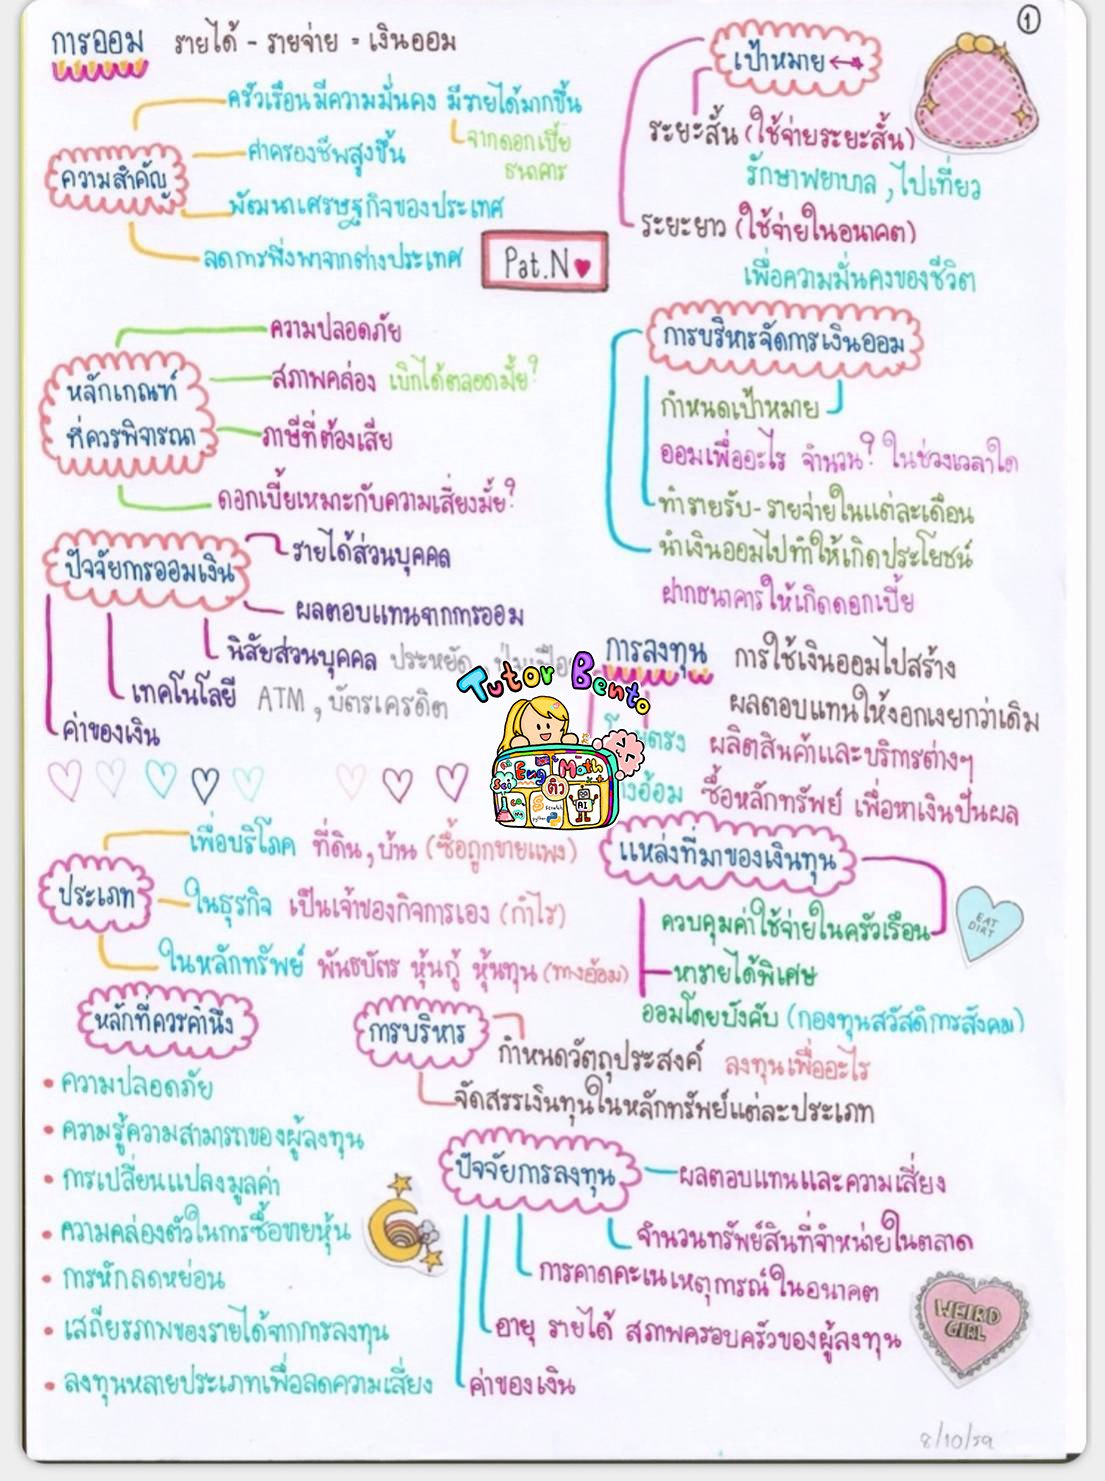 ①
การออม รายได้ - รายจ่าย = เงินออม
ความสำคัญ
ครัวเรือนมีความมั่นคง มีรายได้มากขึ้น
จากดอกเบี้ย
ธนาคาร
ค่าครองชีพสูงขึ้น
พัฒนาเศรษฐกิจของประเทศ
ลดการพึ่งพาจากต่างประเทศ
Pat.N♥
เป้าหมาย
ระยะสั้น (ใช้จ่ายระยะสั้น)
รักษาพยาบาล, ไปเที่ยว
ระยะยาว (ใช้จ่ายในอนาคต)
เพื่อความมั่นคงของชีวิต
หลักเกณฑ์
ที่ควรพิจารณา
ความปลอดภัย
สภาพคล่อง เบิกได้ตลอดมั้ย?
ภาษีที่ต้องเสีย
ดอกเบี้ยเหมาะกับความเสี่ยงมั้ย?
การบริหารจัดการเงินออม
กำหนดเป้าหมาย
ออมเพื่ออะไร จำนวน? ในช่วงเวลาใด
ทำรายรับ-รายจ่ายในแต่ละเดือน
นำเงินออมไปทำให้เกิดประโยชน์
ฝากธนาคารให้เกิดดอกเบี้ย
ปัจจัยการออมเงิน
รายได้ส่วนบุคคล
ผลตอบแทนจากการออม
นิสัยส่วนบุคคล ประหยัด,
เทคโนโลยี ATM, บัตรเครดิต
ค่าของเงิน
Tutor Bento
Sci Eng Math
ติว
scratch
python
AI
การลงทุน การใช้เงินออมไปสร้าง
ผลตอบแทนให้งอกเงยกว่าเดิม
ผลิตสินค้าและบริการต่างๆ
ซื้อหลักทรัพย์ เพื่อหาเงินปันผล
ประเภท
เพื่อบริโภค ที่ดิน, บ้าน (ซื้อถูกขายแพง)
ในธุรกิจ เป็นเจ้าของกิจการเอง (กำไร)
ในหลักทรัพย์ พันธบัตร หุ้นกู้ หุ้นทุน (ทางอ้อม)
แหล่งที่มาของเงินทุน
ควบคุมค่าใช้จ่ายในครัวเรือน
หารายได้พิเศษ
ออมโดยบังคับ (กองทุนสวัสดิการสังคม)
EAT
DIRT
หลักที่ควรคำนึง
• ความปลอดภัย
• ความรู้ความสามารถของผู้ลงทุน
• การเปลี่ยนแปลงมูลค่า
• ความคล่องตัวในการซื้อขายหุ้น
• การหักลดหย่อน
• เสถียรภาพของรายได้จากการลงทุน
• ลงทุนหลายประเภทเพื่อลดความเสี่ยง
การบริหาร
กำหนดวัตถุประสงค์ ลงทุนเพื่ออะไร
จัดสรรเงินทุนในหลักทรัพย์แต่ละประเภท
ปัจจัยการลงทุน
ผลตอบแทนและความเสี่ยง
จำนวนทรัพย์สินที่จำหน่ายในตลาด
การคาดคะเนเหตุการณ์ในอนาคต
อายุ รายได้ สภาพครอบครัวของผู้ลงทุน
ค่าของเงิน
WEIRD
GIRL
8/10/59